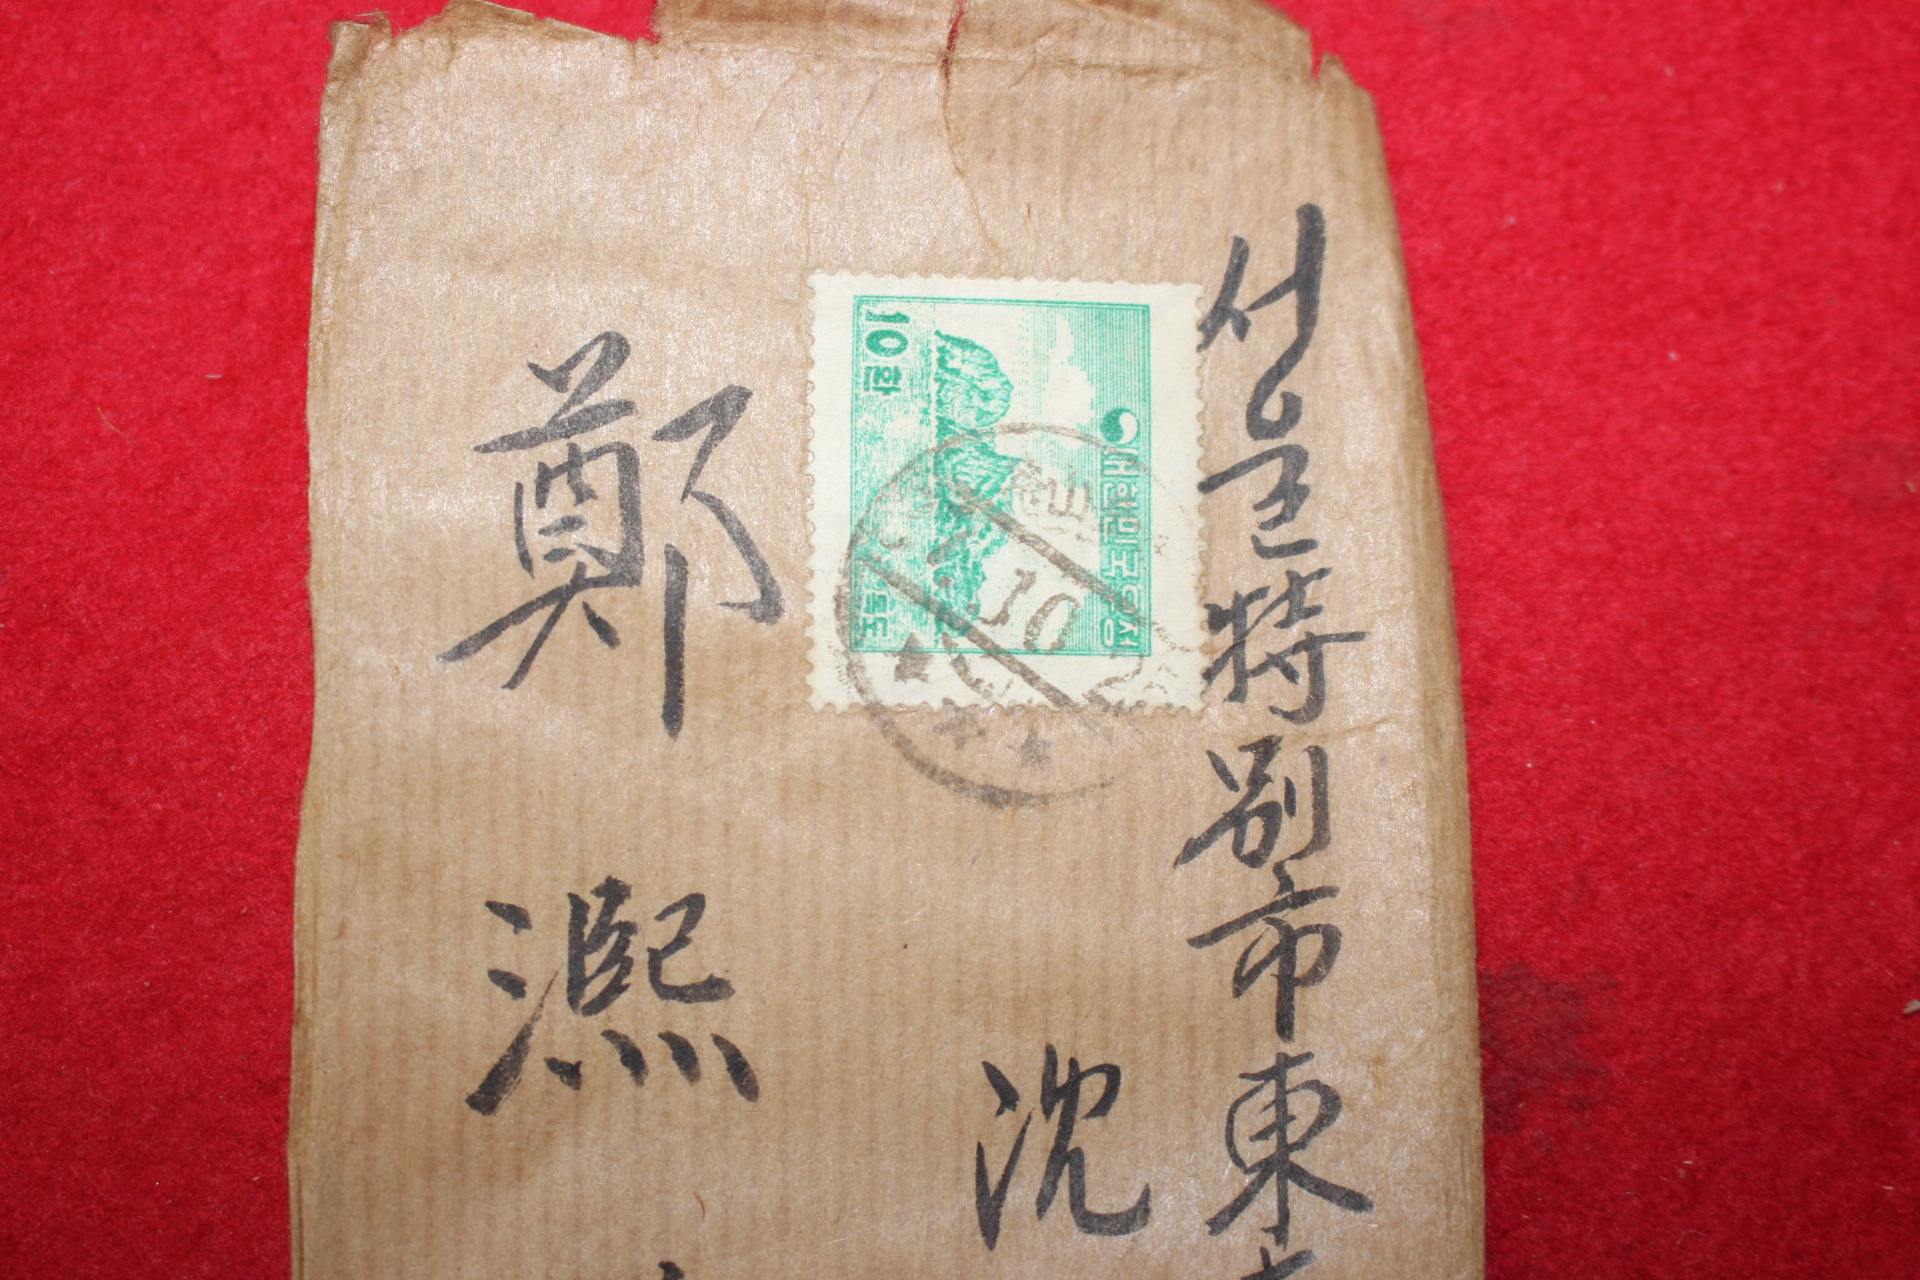 서울特別市東
沈
鄭澠
대한민국우정
10환
독도
10